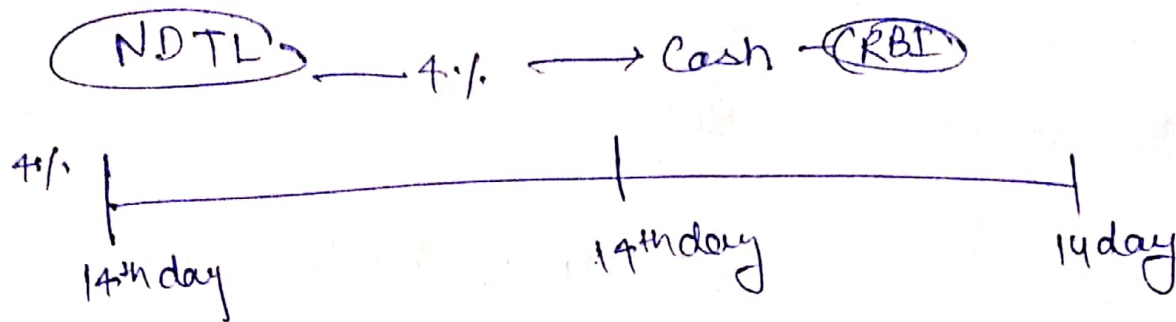 NDTL 4% Cash RBI
4%
14th day 14th day 14 day